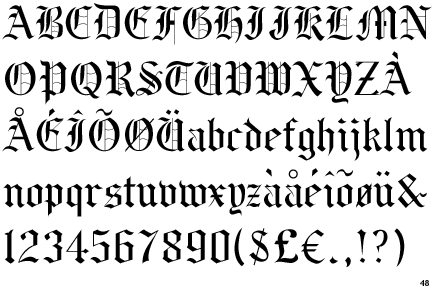 ABCDEFGHIJKLMN
OPQRSTUVWXYZÀ
ÅÉÎÕØÜabcdefghijklm
nopqrstuvwxyzàåéîõøü&
1234567890($£€.,!?)
48